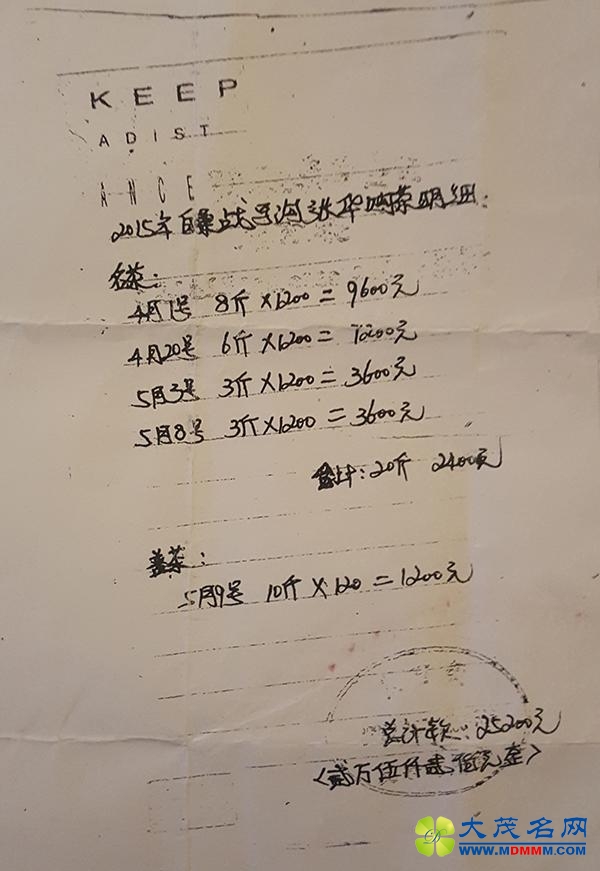 KEEP
ADIST
ANCE
2015年 张华购茶明细:
名茶:
4月1号 8斤×1200=9600元
4月20号 6斤×1200=7200元
5月3号 3斤×1200=3600元
5月8号 3斤×1200=3600元
合计:20斤 24000元
茶:
5月9号 10斤×120=1200元
总计款:25200元
(贰万伍仟贰佰元整)
大茂名网
WWW.MDMMM.COM